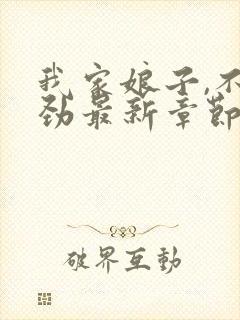 我家娘子,不
劲最新章节
破界互動